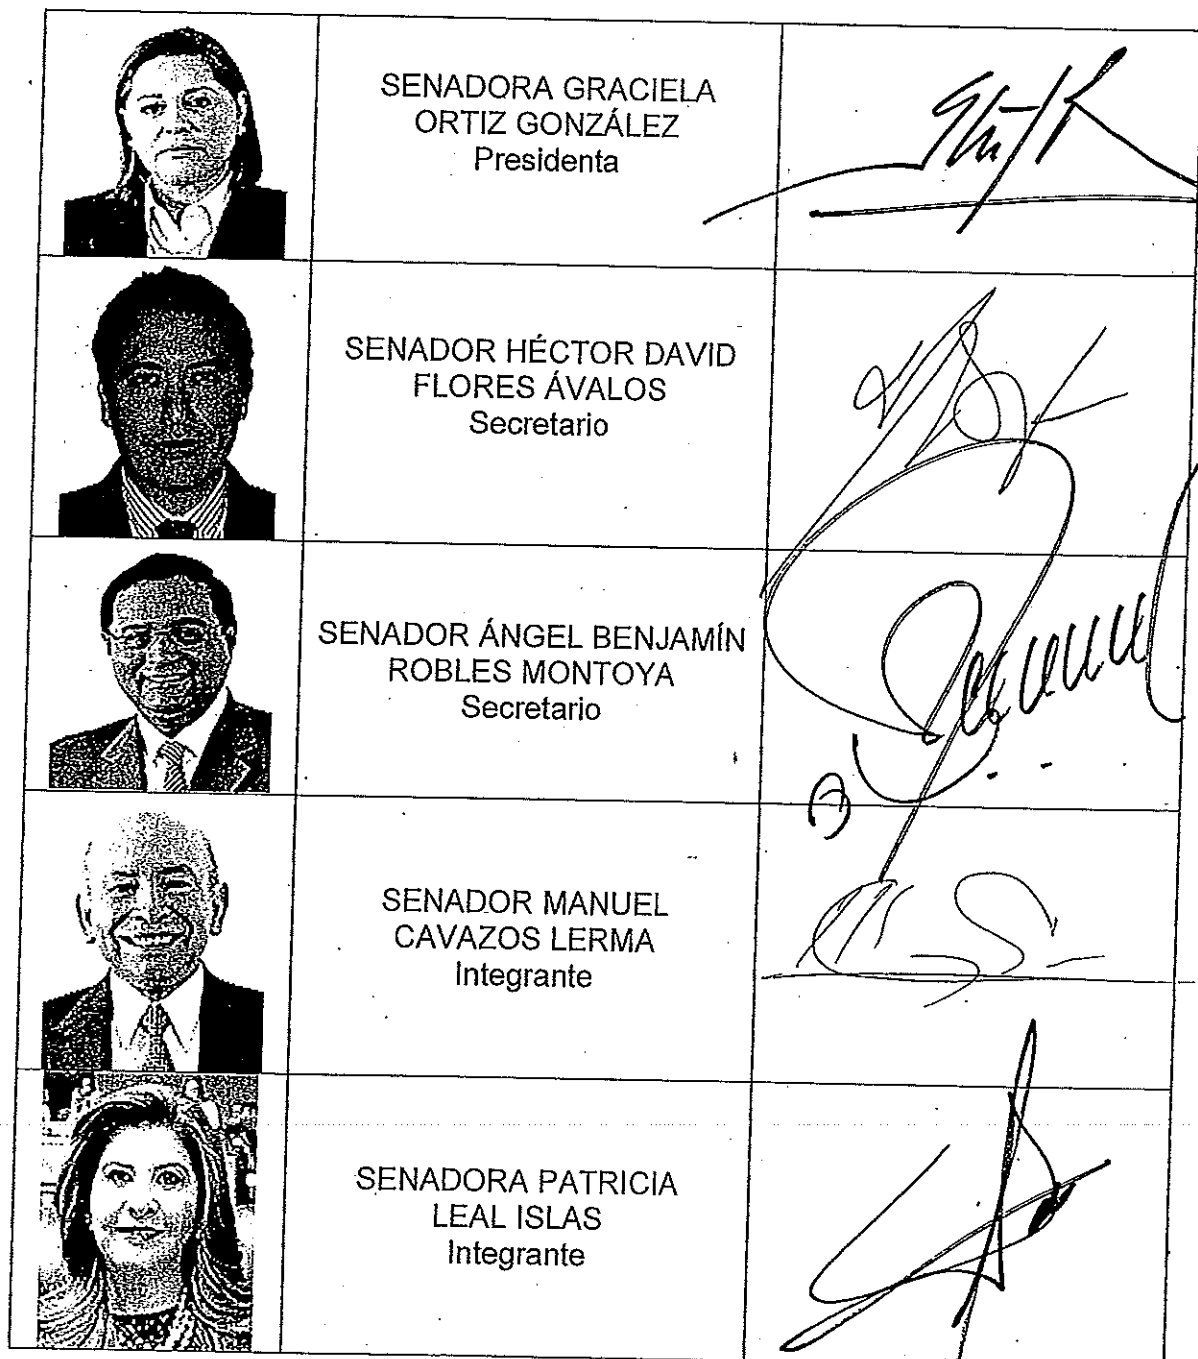 SENADORA GRACIELA
ORTIZ GONZÁLEZ
Presidenta
SENADOR HÉCTOR DAVID
FLORES ÁVALOS
Secretario
SENADOR ÁNGEL BENJAMÍN
ROBLES MONTOYA
Secretario
SENADOR MANUEL
CAVAZOS LERMA
Integrante
SENADORA PATRICIA
LEAL ISLAS
Integrante